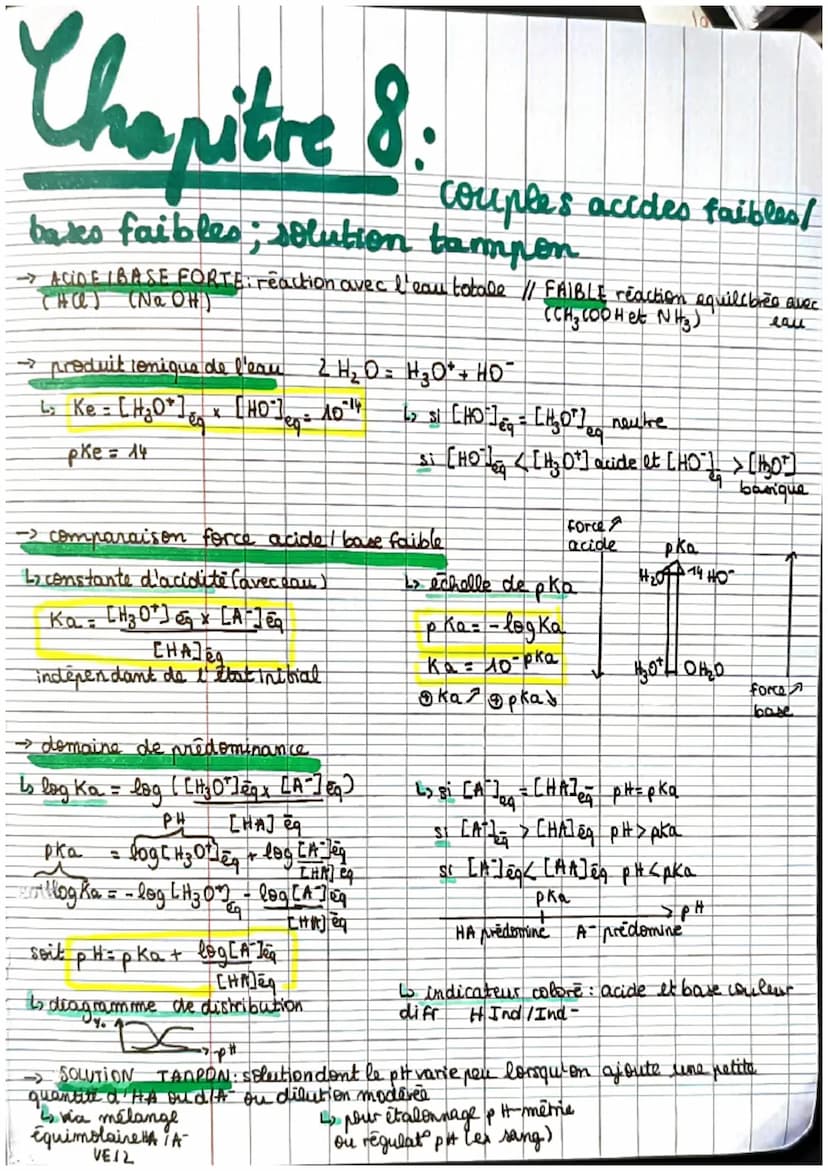 Chapitre 8:
couples acides faibles/
bases faibles; solution tampon
→ ACIDE/BASE FORTE: réaction avec l'eau totale // FAIBLE réaction equilibrée avec
(HCl) (NaOH) (CH3COOH et NH3) eau
→ produit ionique de l'eau 2 H2O = H3O+ + HO-
↳ Ke = [H3O+]éq × [HO-]éq = 10^-14 ↳ si [HO-]éq = [H3O+]éq neutre
pKe = 14 si [HO-]éq < [H3O+] acide et [HO-]éq > [H3O+]
basique
→ comparaison force acide / base faible
↳ constante d'acidité (avec eau)
Ka = [H3O+]éq × [A-]éq
[HA]éq
indépendant de l'état initial
↳ échelle de pKa
pKa = -log Ka
Ka = 10^-pKa
⊕ Ka ↗ ⊕ pKa ↘
force ↗
acide
pKa
H2O 14 HO-
H3O+ 0 H2O
force ↗
base
→ domaine de prédominance
↳ log Ka = log ([H3O+]éq × [A-]éq)
[HA]éq
PH
= log[H3O+]éq + log [A-]éq
[HA]éq
pKa
-log Ka = -log [H3O+]éq - log [A-]éq
[HA]éq
soit pH = pKa + log [A-]éq
[HA]éq
↳ si [A-]éq = [HA]éq pH = pKa
si [A-]éq > [HA]éq pH > pKa
si [A-]éq < [AA]éq pH < pKa
pKa
→ pH
HA prédomine A- prédomine
↳ diagramme de distribution
%
→ pH
↳ indicateur coloré : acide et base couleur
difr HInd/Ind-
→ SOLUTION TANPON: solution dont le pH varie peu lorsqu'on ajoute une petite
quantité d'HA ou d'A- ou dilution modérée
↳ via mélange
équimolaire HA/A-
VE12
↳ pour étalonnage pH-métrie
ou régulat° pH (ex sang)